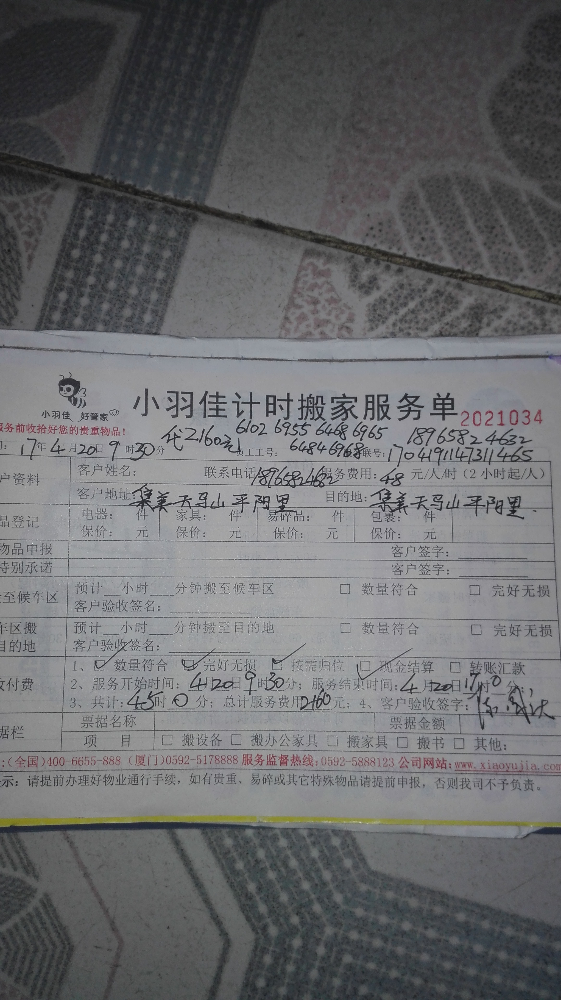 小羽佳 好管家
小羽佳计时搬家服务单 2021034
服务前收拾好您的贵重物品!
17年4月20日9时30分 代2160元 6102 6955 6468 6965 18965824632
员工工号: 6484 6968 联号: 170419114731465
户资料 客户姓名: 联系电话 服务费用: 48 元/人/时 (2小时起/人)
客户地址: 集美天马山平阳里 目的地: 集美天马山平阳里
品登记 电器: 件 家具: 件 易碎品: 件 包装: 件
保价: 元 保价: 元 保价: 元 保价: 元
物品申报 客户签字:
特别承诺 客户签字:
至候车区 预计 小时 分钟搬至候车区 □ 数量符合 □ 完好无损
客户验收签名:
车区搬 预计 小时 分钟搬至目的地 □ 数量符合 □ 完好无损
目的地 客户验收签名:
1、☑ 数量符合 ☑ 完好无损 ☑ 按需归位 ☑ 现金结算 □ 转账汇款
收付费 2、服务开始时间: 4月20日9时30分; 服务结束时间: 4月20日17时0分;
3、共计: 45时0分; 总计服务费用2160元; 4、客户验收签字:
据栏 票据名称 票据金额
项 目 □ 搬设备 □ 搬办公家具 □ 搬家具 □ 搬书 □ 其他:
:(全国)400-6655-888 (厦门)0592-5178888 服务监督热线:0592-5888123 公司网站:www.xiaoyujia.com
示: 请提前办理好物业通行手续, 如有贵重、易碎或其它特殊物品请提前申报, 否则我司不予负责。